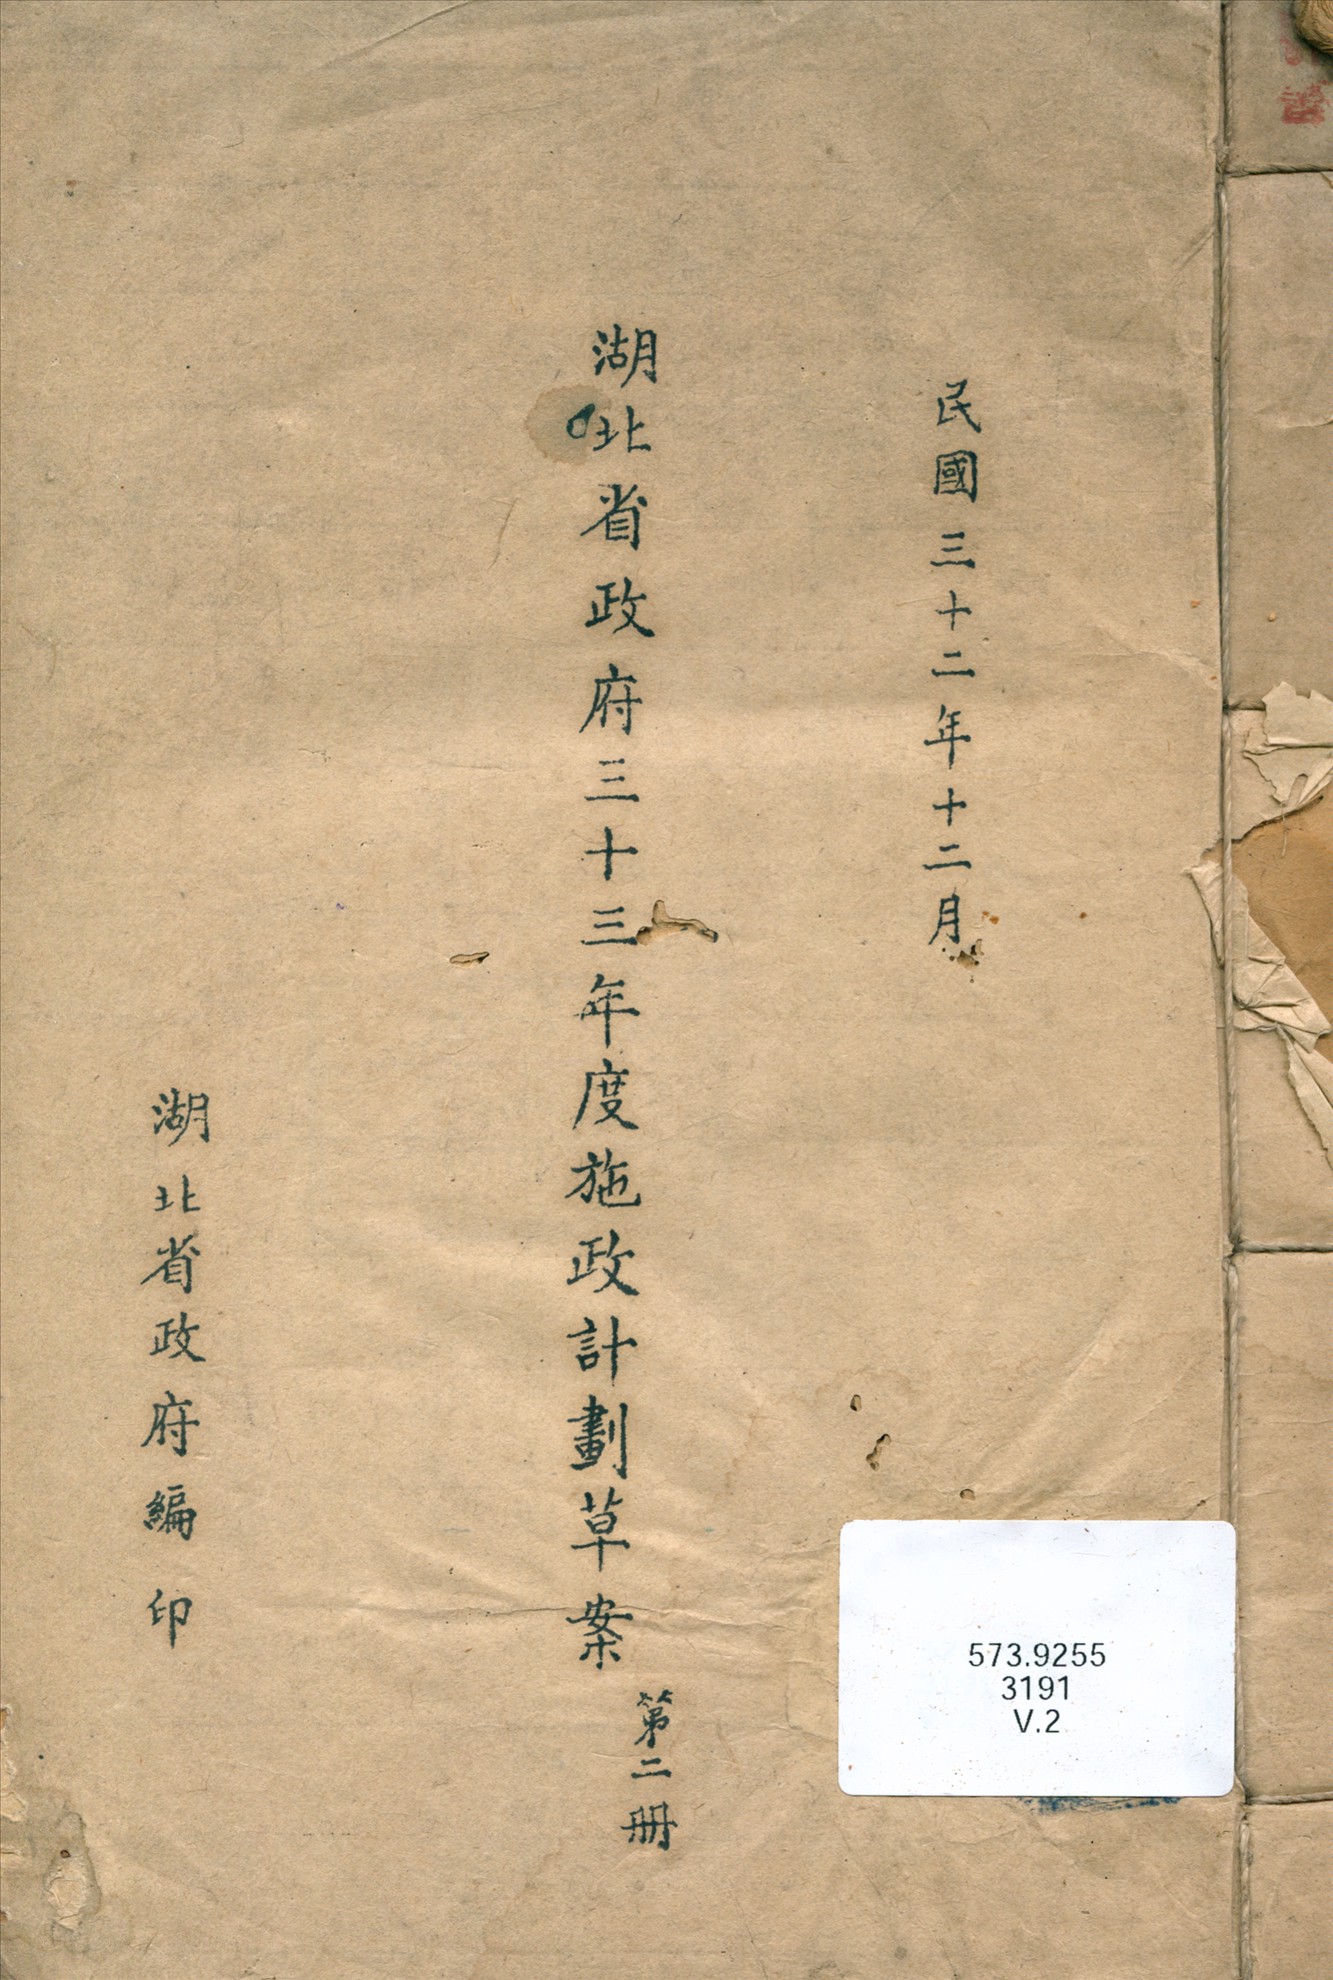 民國三十二年十二月
湖北省政府三十三年度施政計劃草案
第二册
湖北省政府編印
573.9255
3191
V.2